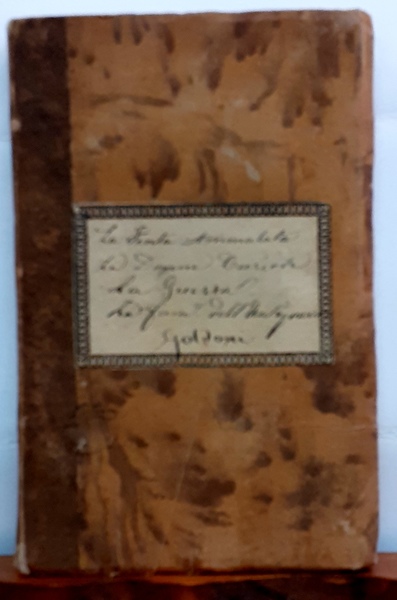 La Finta Ammalata
Le Donne Curiose
La Guerra
La Fam.ª dell'Antiquario
Goldoni